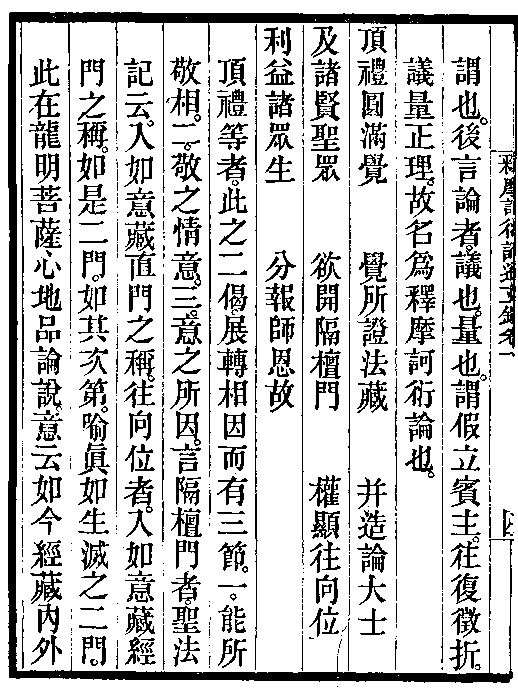 釋摩訶衍論通玄鈔卷一
四
謂也。後言論者。議也。量也。謂假立賓主。往復徵折。
議量正理。故名爲釋摩訶衍論也。
頂禮圓滿覺 覺所證法藏 并造論大士
及諸賢聖眾 欲開隔檀門 權顯往向位
利益諸眾生 分報師恩故
頂禮等者。此之二偈。展轉相因而有三節。一。能所
敬相。二。敬之情意。三。意之所因。言隔檀門者。聖法
記云。入如意藏直門之稱。往向位者。入如意藏經
門之稱。如是二門。如其次第。喻眞如生滅之二門。
此在龍明菩薩心地品論說。意云如今經藏內外